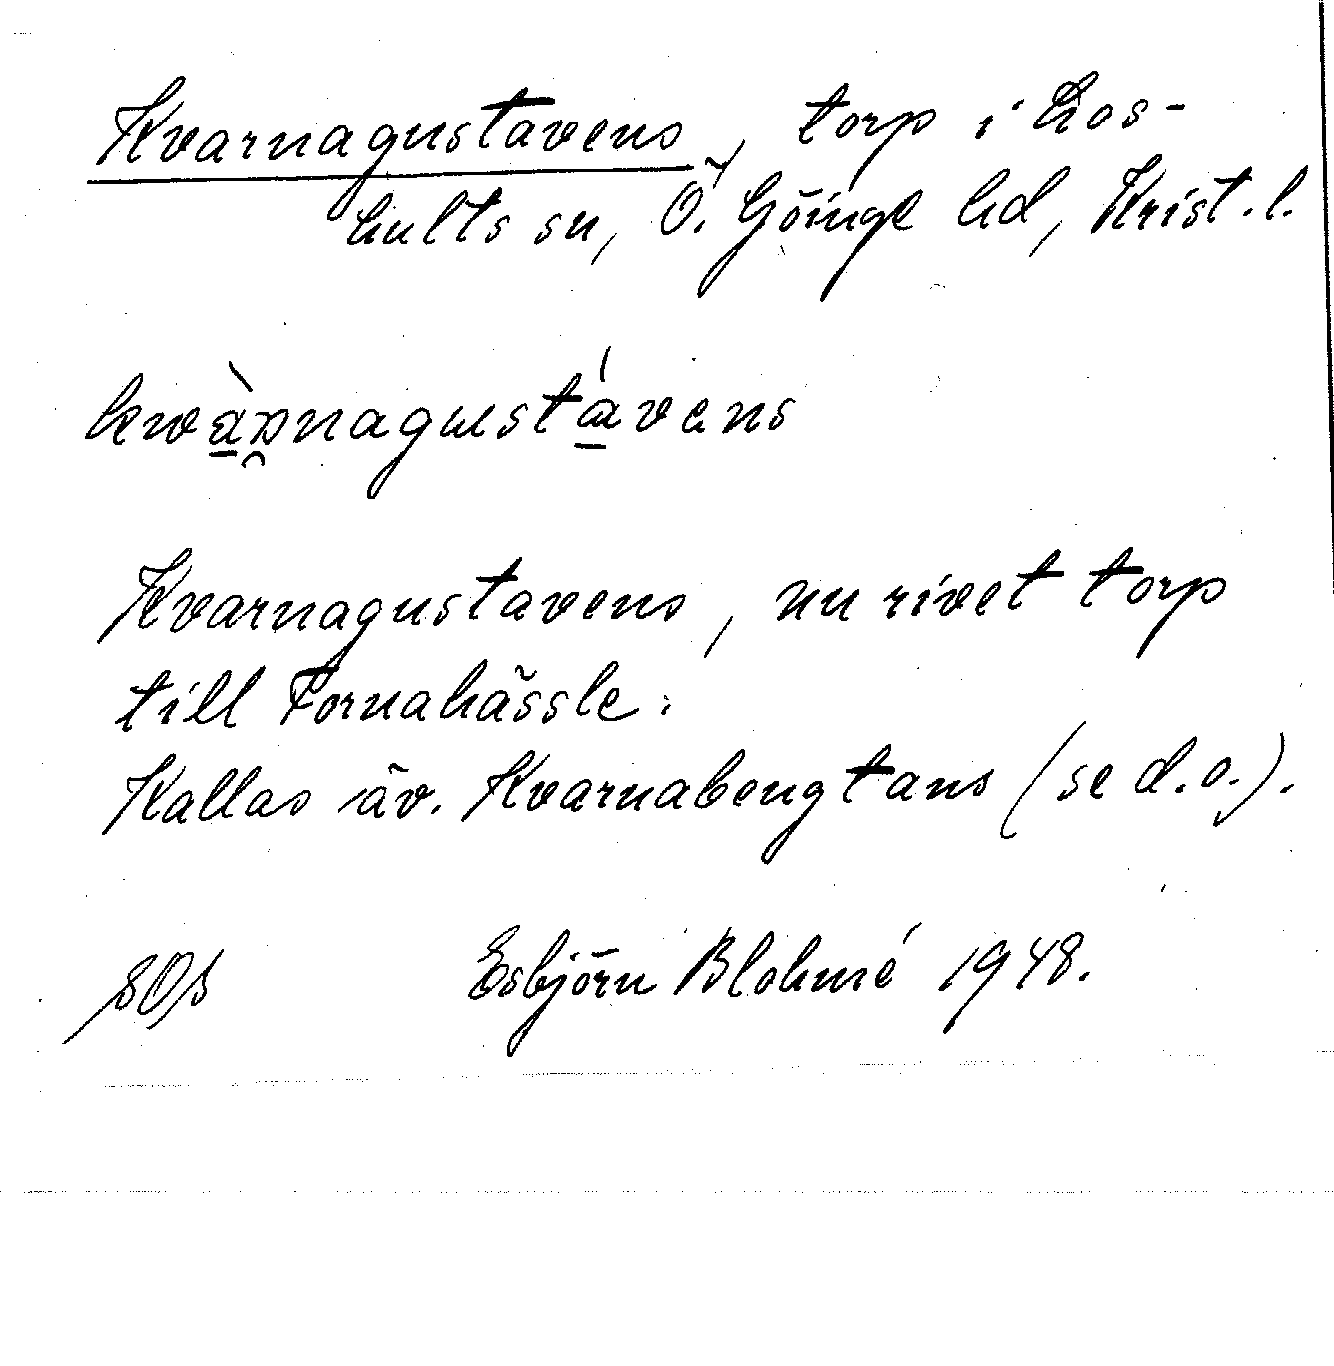 Kvarnagustavens, torp i Los-
hults sn, Ö. Göinge hd, Krist. l.
Kvarnagustavens, nu rivet torp
till Fornahässle.
Kallas äv. Kvarnabengtans (se d.o.).
SOS Esbjörn Blohmé 1948.